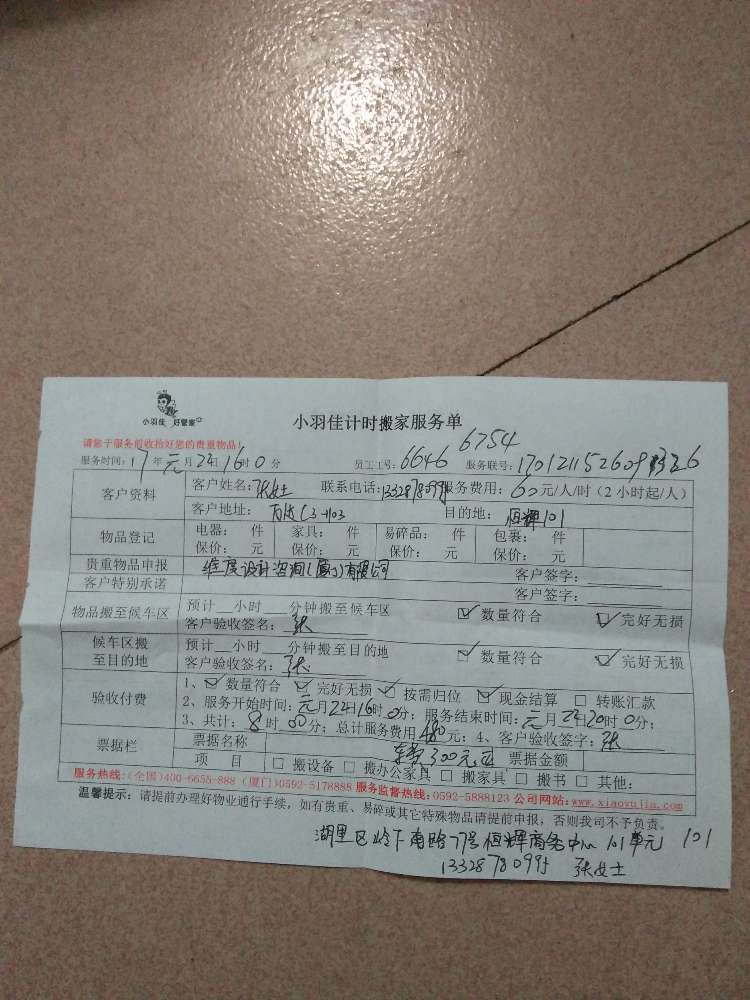 小羽佳 好管家
小羽佳计时搬家服务单
请您于服务前收拾好您的贵重物品！
6754
服务时间：17年元月24日16时0分 员工工号：6646 服务联号：170121152609
客户资料 客户姓名：张女士 联系电话： 服务费用：60元/人/时（2小时起/人）
客户地址： 目的地：恒辉101
物品登记 电器： 件 家具： 件 易碎品： 件 包裹： 件
保价： 元 保价： 元 保价： 元 保价： 元
贵重物品申报 维度设计咨询(厦门)有限公司 客户签字：
客户特别承诺 客户签字：
物品搬至候车区 预计__小时__分钟搬至候车区 ☑数量符合 ☑完好无损
客户验收签名：张
候车区搬至目的地 预计__小时__分钟搬至目的地 ☑数量符合 ☑完好无损
客户验收签名：张
验收付费 1、☑数量符合 ☑完好无损 ☑按需归位 ☑现金结算 □转账汇款
2、服务开始时间：元月24日16时0分；服务结束时间：元月24日20时0分；
3、共计：8时00分；总计服务费用480元；4、客户验收签字：张
票据栏 票据名称 车费300元 票据金额
项 目 □搬设备 □搬办公家具 □搬家具 □搬书 □其他：
服务热线：(全国)400-6655-888 (厦门)0592-5178888 服务监督热线：0592-5888123 公司网站：www.xiaoyujia.com
温馨提示：请提前办理好物业通行手续，如有贵重、易碎或其它特殊物品请提前申报，否则我司不予负责。
湖里区岭下南路77号恒辉商务中心101单元 101
张女士